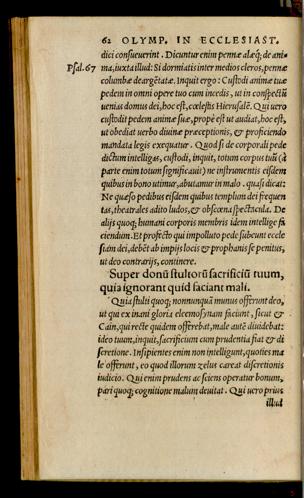 62 OLYMP. IN ECCLESIAST.
dici consueuerint. Dicuntur enim pennæ alæq; de ani-
Psal. 67 ma, iuxta illud: Si dormiatis inter medios cleros, pennæ
columbæ deargẽtatæ. Inquit ergo: Custodi animæ tuæ
pedem in omni opere tuo cum incedis, ut in conspectũ
uenias domus dei, hoc est, cœlestis Hierusalẽ. Qui uero
custodit pedem animæ suæ, propè est ut audiat, hoc est,
ut obediat uerbo diuinæ præceptionis, & proficiendo
mandata legis exequatur. Quod si de corporali pede
dictum intelligas, custodi, inquit, totum corpus tuũ (à
parte enim totum significauit) ne instrumentis eisdem
quibus in bono utimur, abutamur in malo. quasi dicat:
Ne quæso pedibus eisdem quibus templum dei frequen
tas, theatrales adito ludos, & obscœna spectacula. De
alijs quoq; humani corporis membris idem intellige fa
ciendum. Et profectò qui impolluto pede subeunt eccle
siam dei, debẽt ab impijs locis & prophanis se penitus,
ut deo contrarijs, continere.
Super donũ stultorũ sacrificiũ tuum,
quia ignorant quid faciant mali.
Quia stulti quoq; nonnunquã munus offerunt deo,
ut qui ex inani gloria eleemosynam faciunt, sicut &
Cain, qui recte quidem offerebat, male autẽ diuidebat:
ideo tuum, inquit, sacrificium cum prudentia fiat & di
scretione. Insipientes enim non intelligunt, quoties ma
le offerunt, eo quod illorum zelus careat discretionis
iudicio. Qui enim prudens ac sciens operatur bonum,
pari quoq; cognitione malum deuitat. Qui uero prius
illud